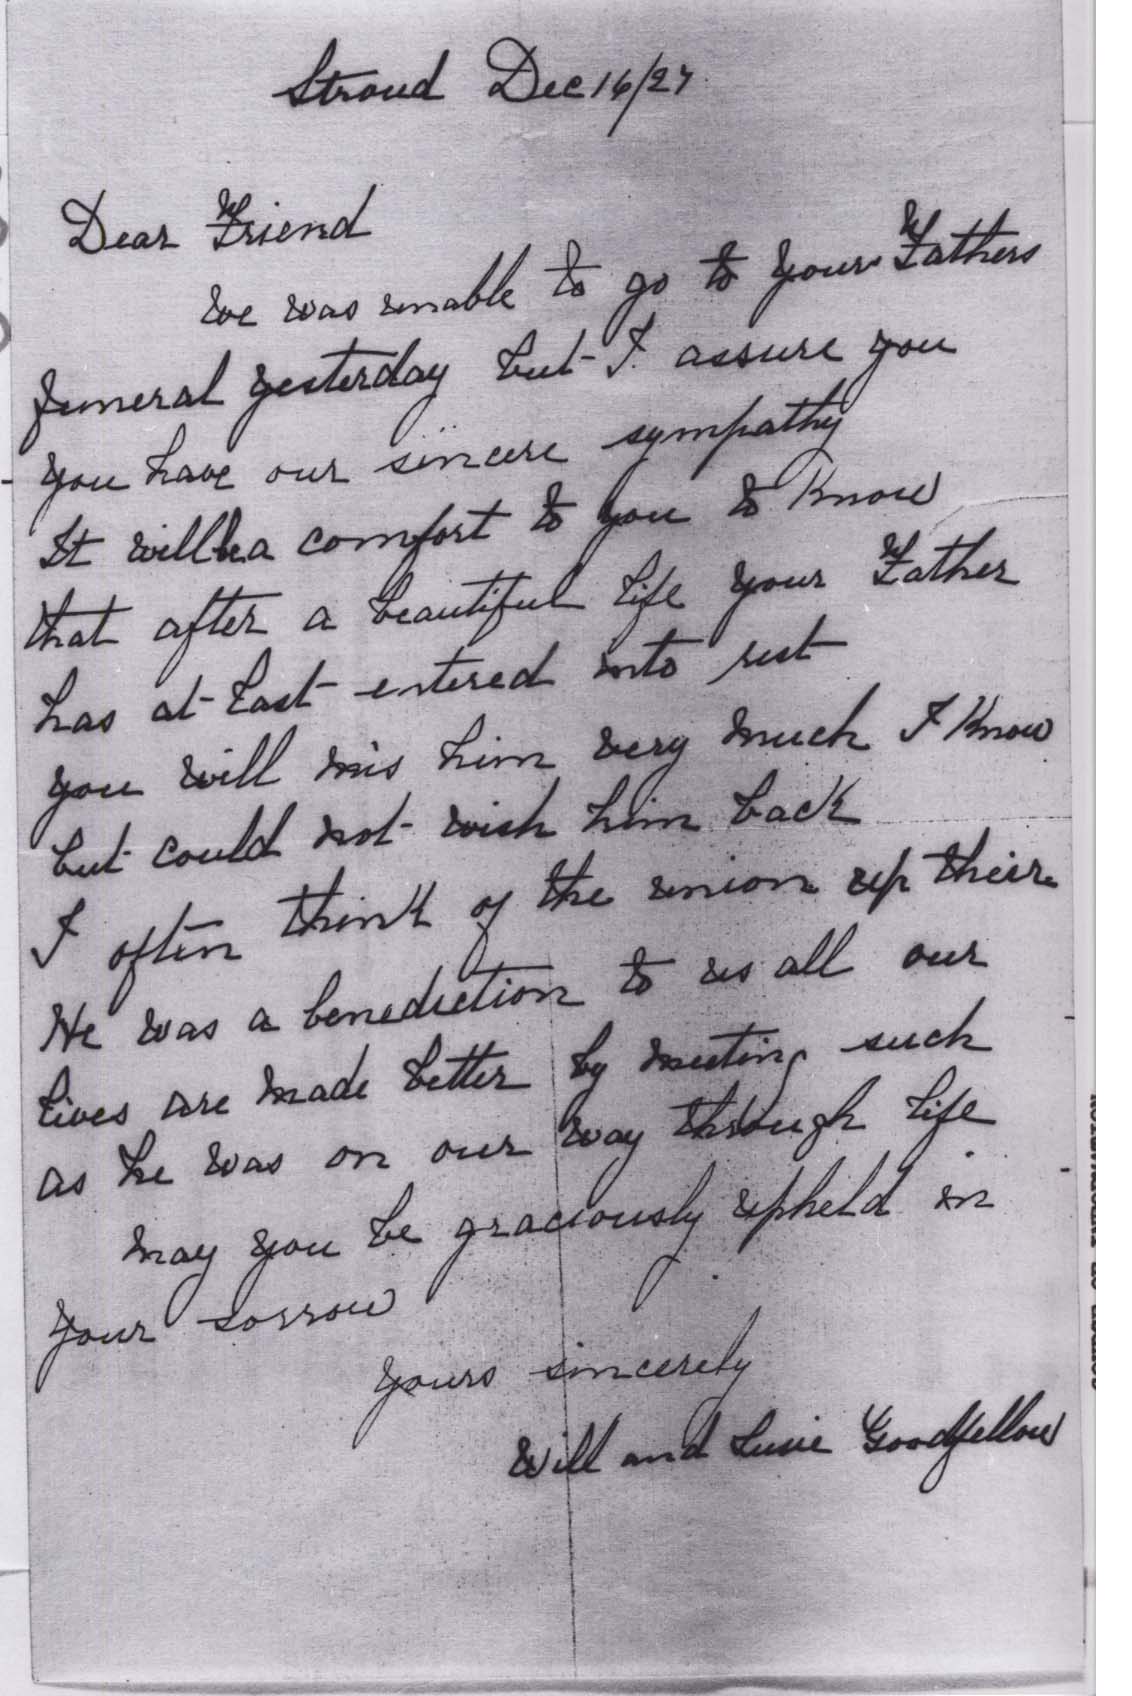 Stroud Dec 16/27
Dear Friend
we was unable to go to your Fathers
funeral yesterday but I assure you
you have our sincere sympathy
It will be a comfort to you to Know
that after a beautiful life your Father
has at last entered into rest
you will mis him very much I Know
but could not wish him back
I often think of the union up their
He was a benediction to us all our
lives are made better by meeting such
as he was on our way through life
may you be graciously upheld in
your sorrow
yours sincerely
Will and Goodfellow